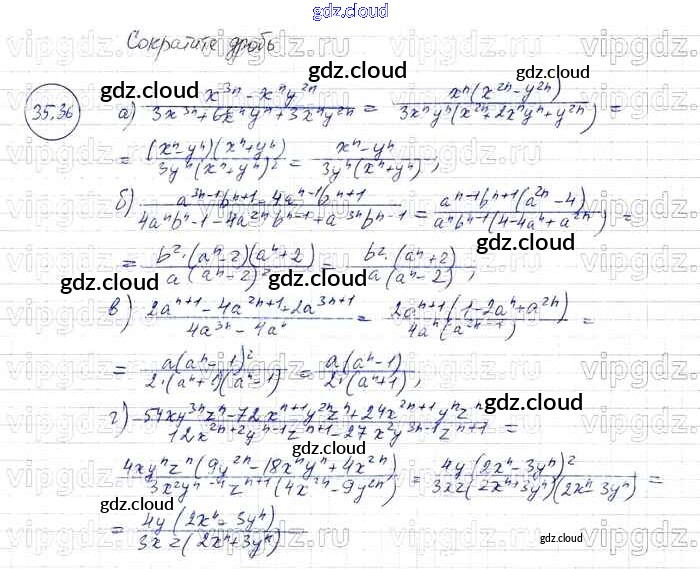 gdz.cloud
Сократите дробь
35.36 а) (x^{3n} - x^n y^{2n}) / (3x^{3n} + 6x^n y^n + 3x^n y^{2n}) = x^n(x^{2n} - y^{2n}) / (3x^n y^n(x^{2n} + 2x^n y^n + y^{2n})) =
= (x^n y^n)(x^n + y^n) / (3y^n(x^n + y^n)^2) = (x^n - y^n) / (3y^n(x^n + y^n)),
б) (a^{3n-1}b^{n+1} - 4a^{n-1}b^{n+1}) / (4a^n b^{n-1} - 4a^{2n}b^{n-1} + a^{3n}b^{n-1}) = a^{n-1}b^{n+1}(a^{2n} - 4) / (a^n b^{n-1}(4 - 4a^n + a^{2n})) =
= b^2·(a^n - 2)(a^n + 2) / (a(a^n - 2)^2) = b^2·(a^n + 2) / (a(a^n - 2)),
в) (2a^{n+1} - 4a^{2n+1} + 2a^{3n+1}) / (4a^{3n} - 4a^n) = 2a^{n+1}(1 - 2a^n + a^{2n}) / (4a^n(a^{2n} - 1)) =
= a(a^n - 1)^2 / (2·(a^n + 1)(a^n - 1)) = a(a^n - 1) / (2·(a^n + 1)),
г) (-54xy^{3n}z^n - 72x^{n+1}y^{2n}z^n + 24x^{2n+1}y^n z^n) / (12x^{2n+2}y^{n-1}z^{n+1} - 27x^2y^{3n-1}z^{n+1}) =
4xy^n z^n(9y^{2n} - 18x^n y^n + 4x^{2n}) / (3x^2y^{n-1}z^{n+1}(4x^{2n} - 9y^{2n})) = 4y(2x^n - 3y^n)^2 / (3xz(2x^n + 3y^n)(2x^n - 3y^n)) =
= 4y(2x^n - 3y^n) / (3xz(2x^n + 3y^n))